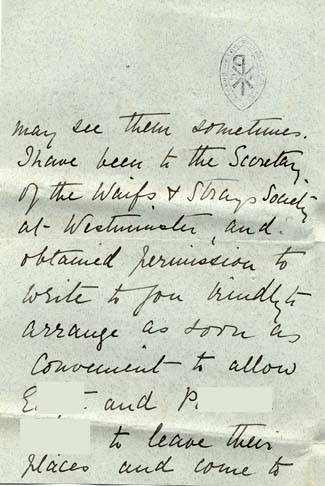 may see them sometimes.
I have been to the Secretary
of the Waifs & Strays Society
at Westminster, and
obtained permission to
write to you kindly to
arrange as soon as
convenient to allow
E. and P.
to leave their
places and come to